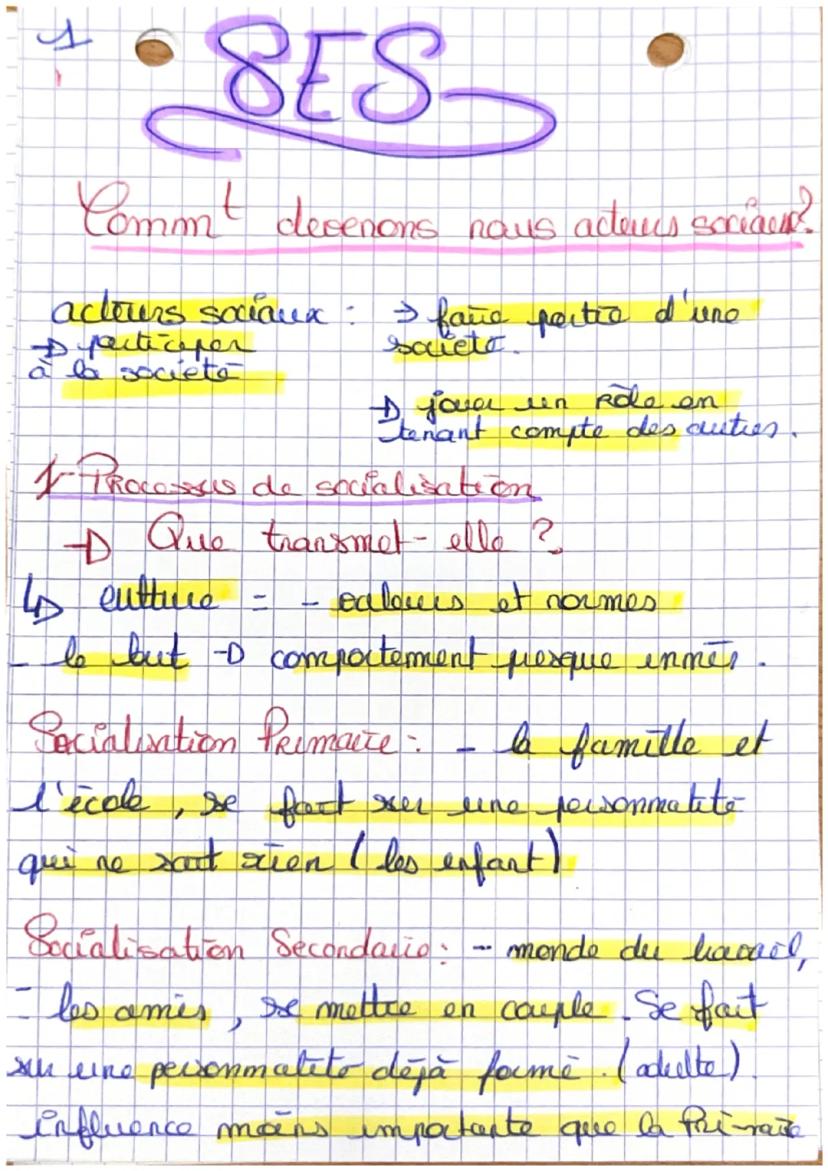 1
SES
Comm^t devenons nous acteurs sociaux?
acteurs sociaux : → faire partie d'une
→ participer société.
à la société
→ jouer un rôle en
tenant compte des autres.
1- Processus de socialisation
→ Que transmet-elle ?
↳ culture = - valeurs et normes
- le but → comportement presque innés.
Socialisation Primaire : - la famille et
l'école, se fait sur une personnalité
qui ne sait rien (les enfant)
Socialisation Secondaire : - monde du travail,
- les amis, se mettre en couple. Se fait
sur une personnalité déjà formé. (adulte).
influence moins importante que la Primaire